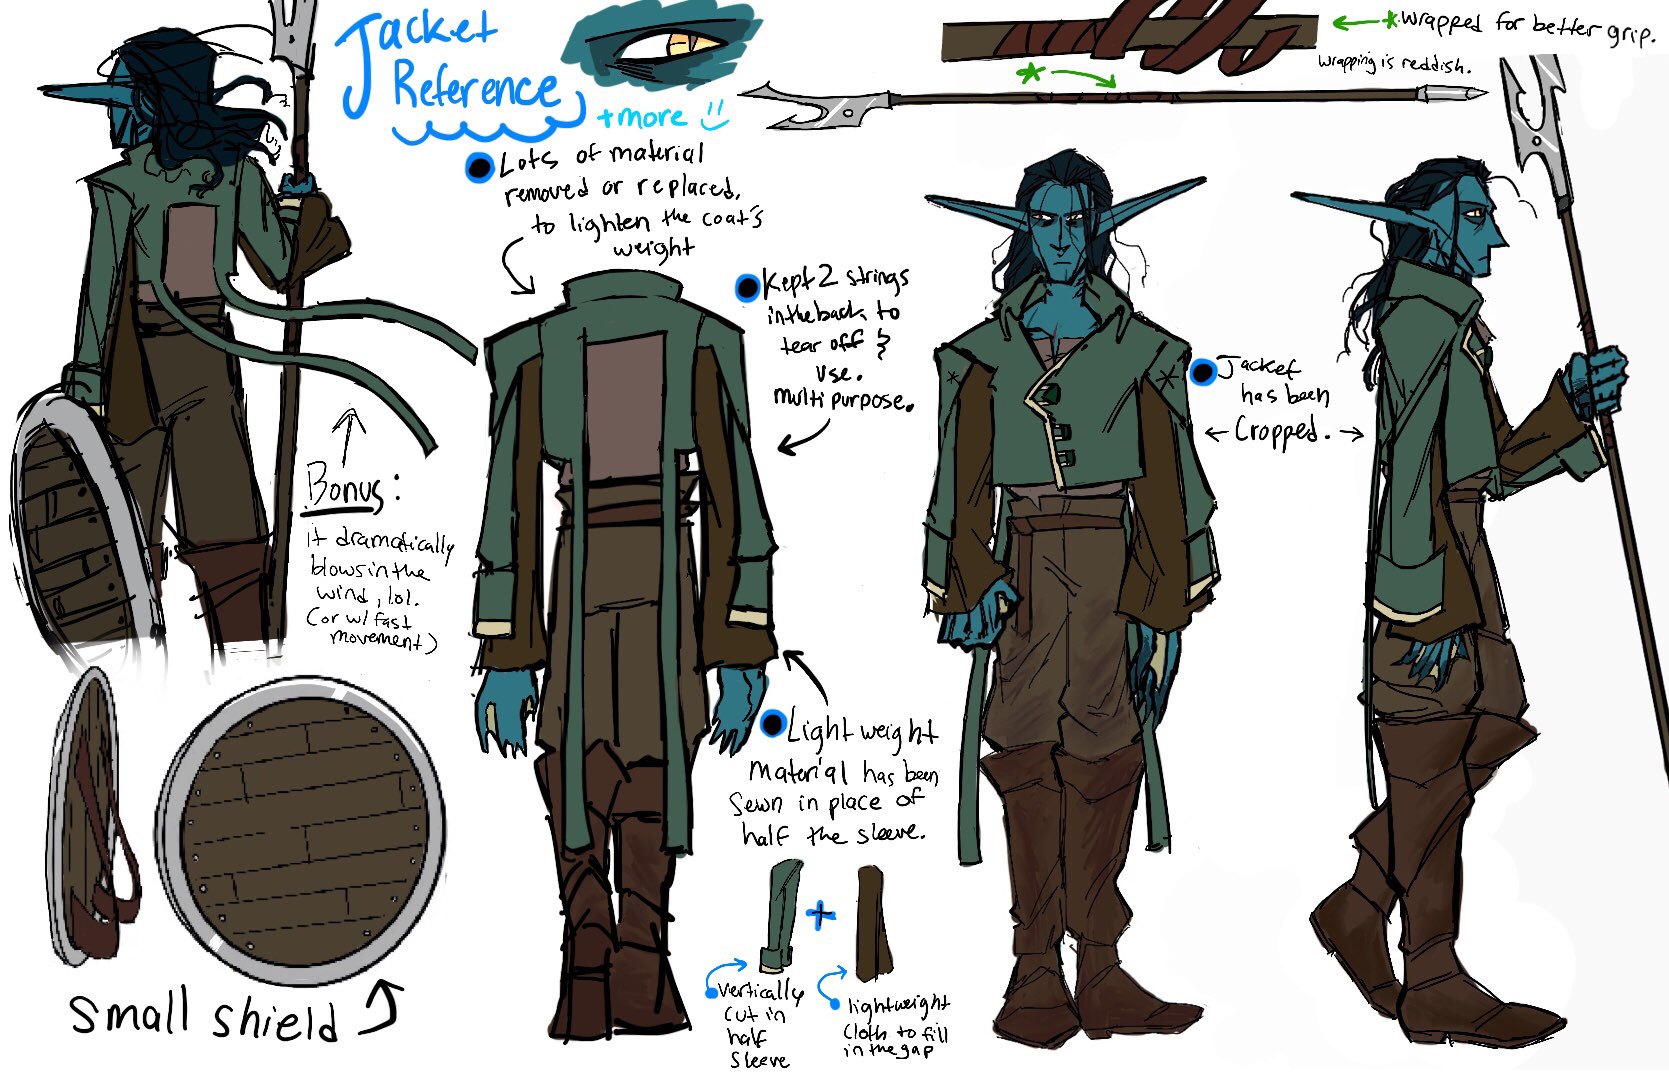 Jacket
Reference
+more
*wrapped for better grip.
wrapping is reddish.
*
Lots of material
removed or replaced,
to lighten the coat's
weight
Kept 2 strings
in the back to
tear off &
use.
multipurpose.
Jacket
has been
Cropped.
Bonus:
it dramatically
blows in the
wind, lol.
(or w/ fast
movement)
Light weight
material has been
Sewn in place of
half the sleeve.
+
vertically
cut in
half
sleeve
lightweight
cloth to fill
in the gap
Small shield